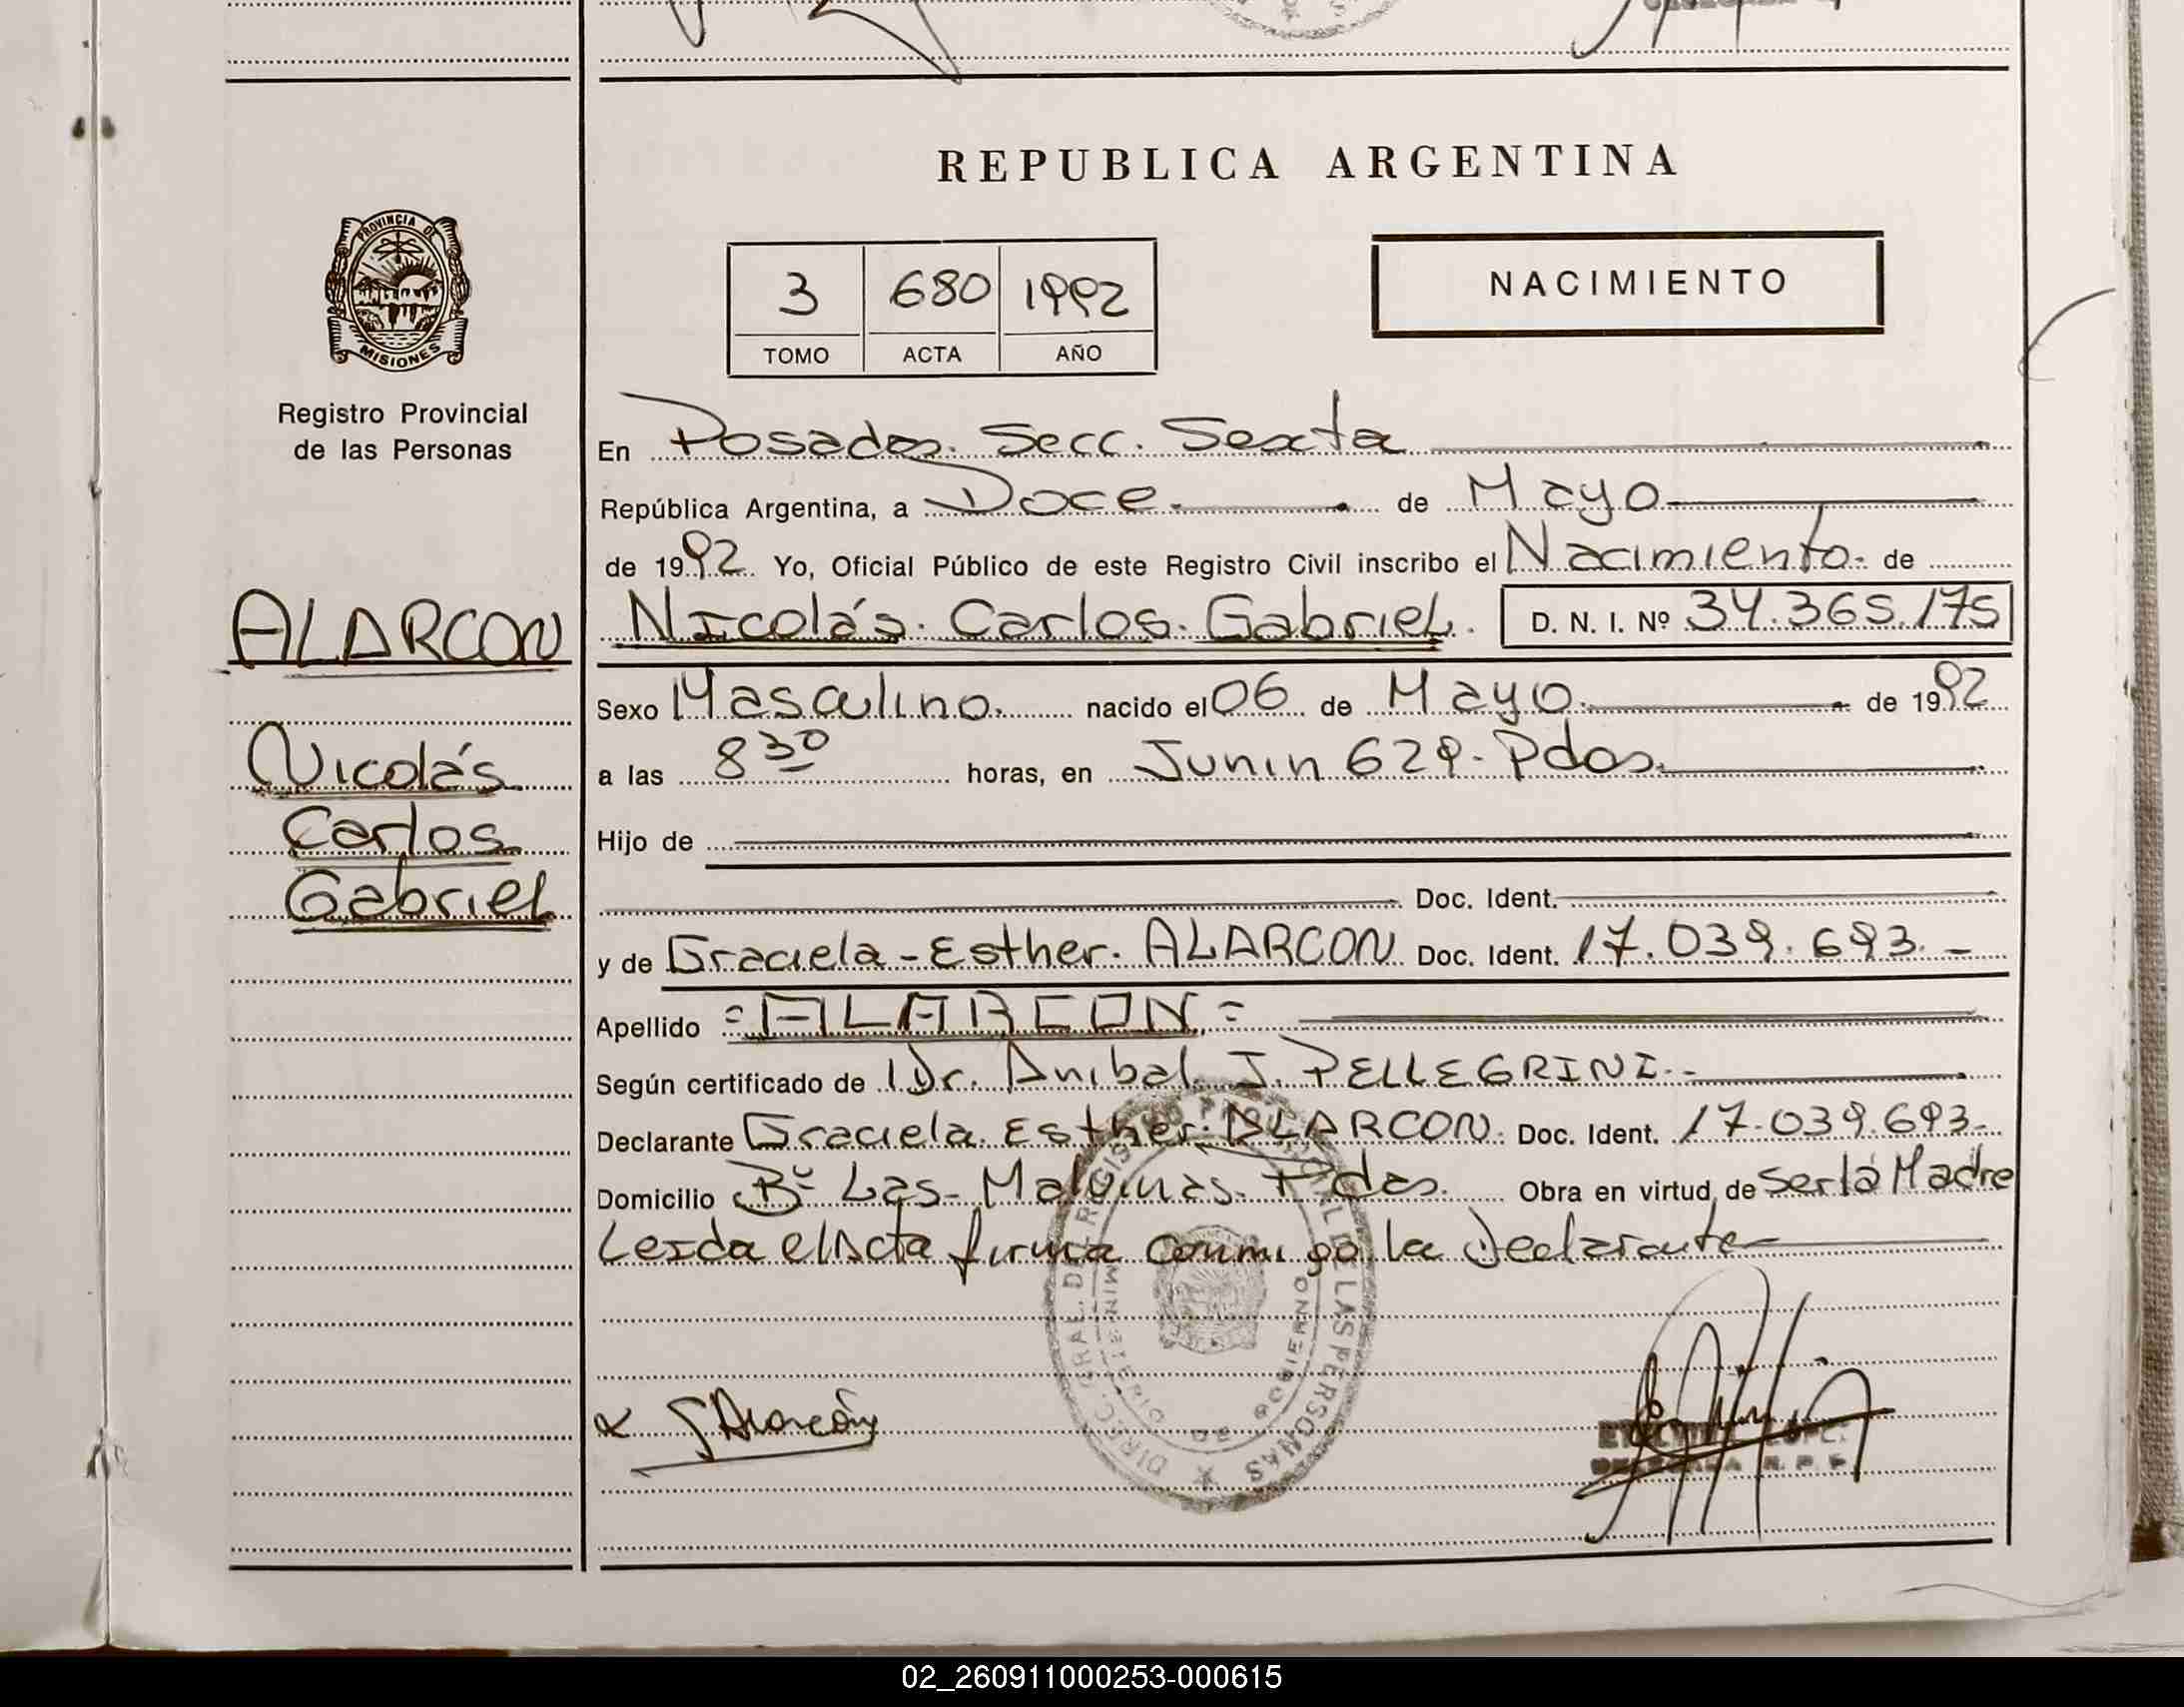 REPUBLICA ARGENTINA
PROVINCIA DE
MISIONES
3 680 1992
TOMO ACTA AÑO
NACIMIENTO
Registro Provincial
de las Personas
En Posadas. Secc. Sexta
República Argentina, a Doce. de Mayo
de 1992 Yo, Oficial Público de este Registro Civil inscribo el Nacimiento. de
ALARCON
Nicolás. Carlos. Gabriel. D. N. I. Nº 34.365.175
Sexo Masculino. nacido el 06 de Mayo. de 1992
Nicolás
a las 8 30 horas, en Junin 629. Pdas.
Carlos
Hijo de
Gabriel
Doc. Ident.
y de Graciela-Esther. ALARCON Doc. Ident. 17.039.693.-
Apellido =ALARCON.=
Según certificado de Dr. Anibal J. PELLEGRINI.-
Declarante Graciela Esther. ALARCON. Doc. Ident. 17.039.693-
Domicilio Bº Las-Malvinas. Pdas. Obra en virtud de Ser la Madre
Leida el Acta firma conmigo la Declarante
DIREC. GRAL. DEL REGISTRO PROVINCIAL DE LAS PERSONAS
DE GOBIERNO
G Alarcón
02_260911000253-000615